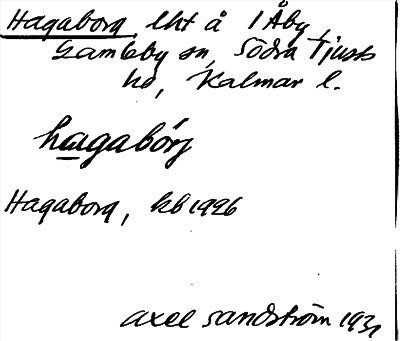 Hagaborg lht å 1 Åby,
Gamleby sn, Södra Tjusts
hd, Kalmar l.
hagabórj
Hagaborg, kb 1926
Axel Sandström 1931